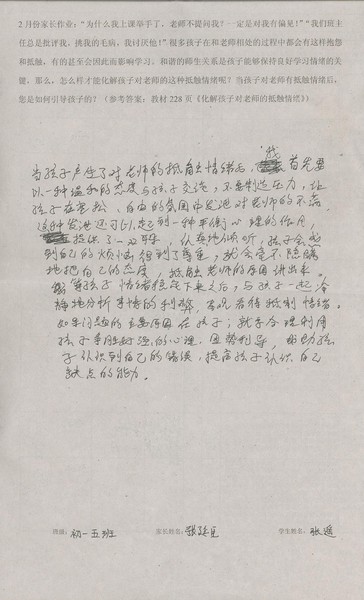 2月份家长作业：“为什么我上课举手了，老师不提问我？一定是对我有偏见！”“我们班主
任总是批评我，挑我的毛病，我讨厌他！”很多孩子在和老师相处的过程中都会有这样抱怨
和抵触，有的甚至会因此而影响学习。和谐的师生关系是孩子能够保持良好学习情绪的关
键，那么，怎么样才能化解孩子对老师的这种抵触情绪呢？当孩子对老师有抵触情绪后，
您是如何引导孩子的？（参考答案：教材228页《化解孩子对老师的抵触情绪》）
当孩子产生了对老师的抵触情绪后，我首先要
以一种温和的态度与孩子交流，不要制造压力，让
孩子在轻松、自由的氛围中发泄对老师的不满。
这种发泄还可以起到一种平衡心理的作用，
提供了一双耳朵，认真地倾听，孩子会感
到自己的烦恼得到了尊重，就会毫不隐瞒
地把自己的态度，抵触老师的原因讲出来。
等孩子情绪稳定下来之后，与孩子一起冷
静地分析事情的利弊，客观看待抵制情绪。
如果问题的主要原因在孩子；就要合理利用
孩子争胜好强的心理，因势利导，帮助孩
子认识到自己的错误，提高孩子认识自己
缺点的能力。
班级：初一五班 家长姓名： 学生姓名：张遥